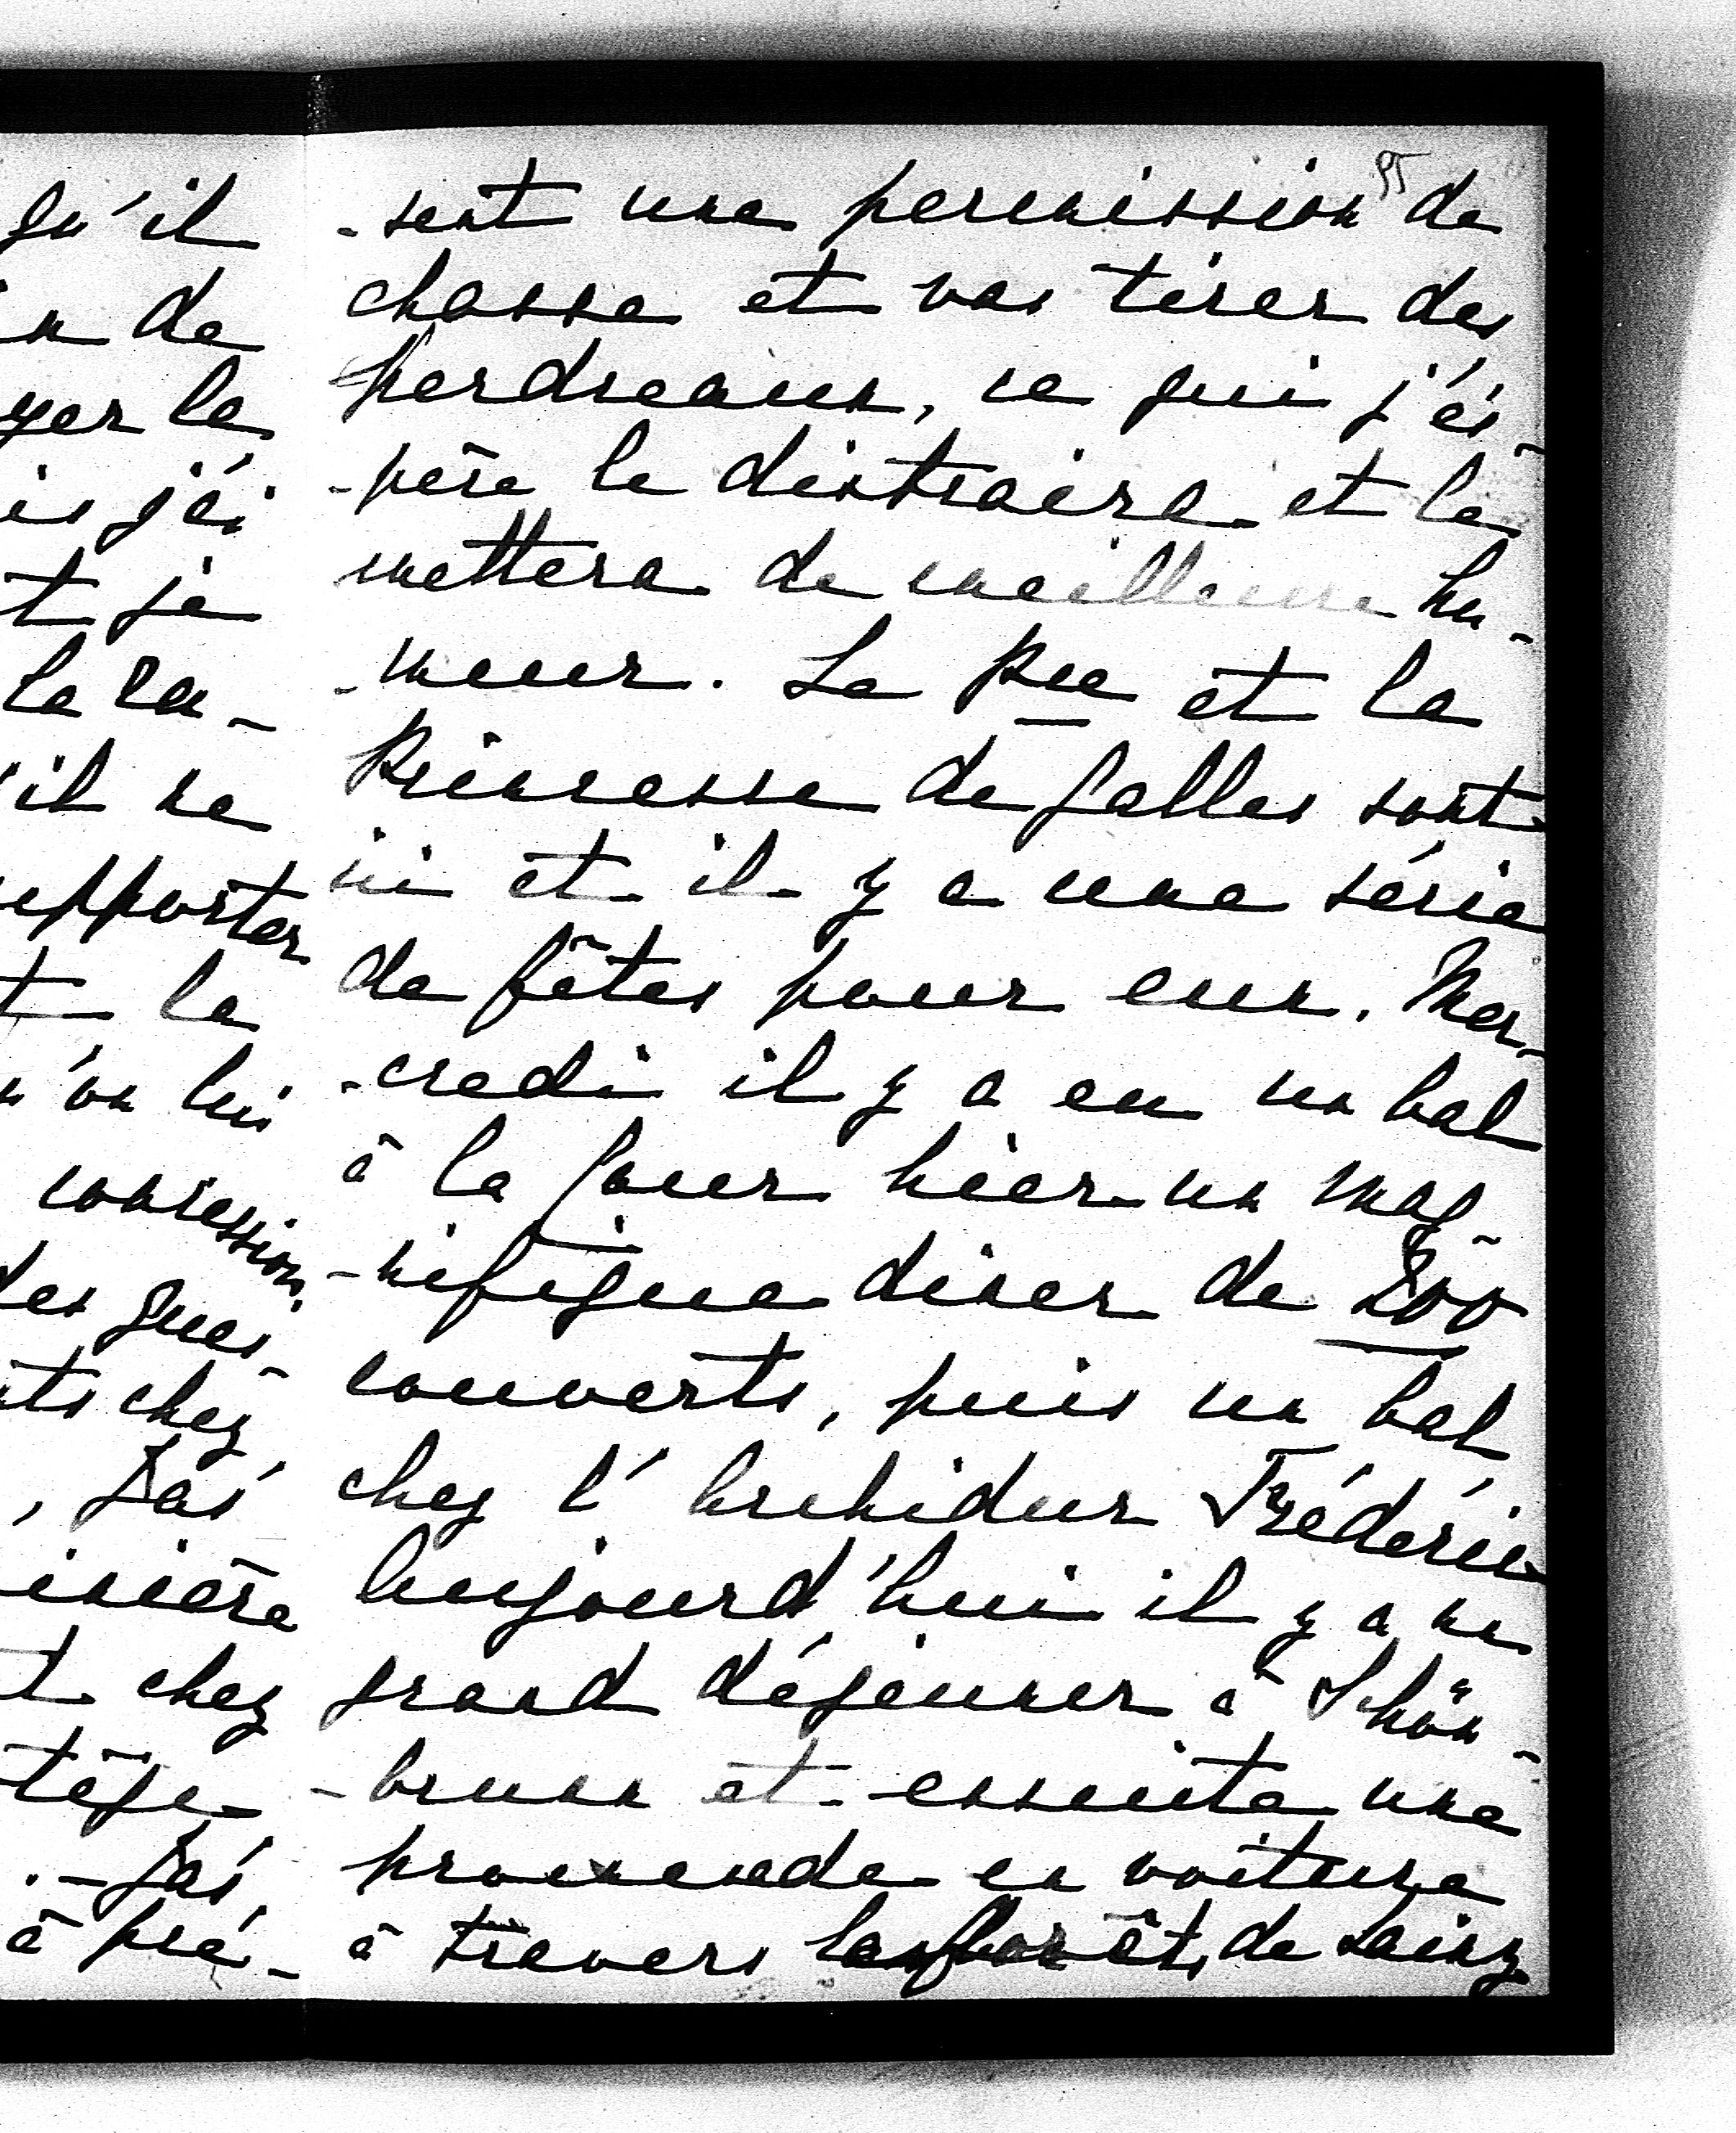 qu'il
n de
yer le
is j'ai
t je
le ra-
'il ne
supporter
t le
n'on lui
concession,
des ques-
ts chez
, J'ai
inière
t chez
tège
. - J'ai
à pré-
95
-sent une permission de
chasse et vas tirer des
perdreaux, ce qui j'es-
-père le distraira et le
mettera de meilleure hu-
-meur. Le Pce et la
Princesse de Galles sont
ici et il y a une série
de fêtes pour eux. Mer-
-credi il y a eu un bal
à la Cour hier un mag-
-nifique diner de 200
couverts, puis un bal
chez l'Archiduc Fréderic
Aujourd'hui il y a un
grand déjeuner à Schön-
-brunn et ensuite une
promenade en voiture
à travers les forêts de Lainz